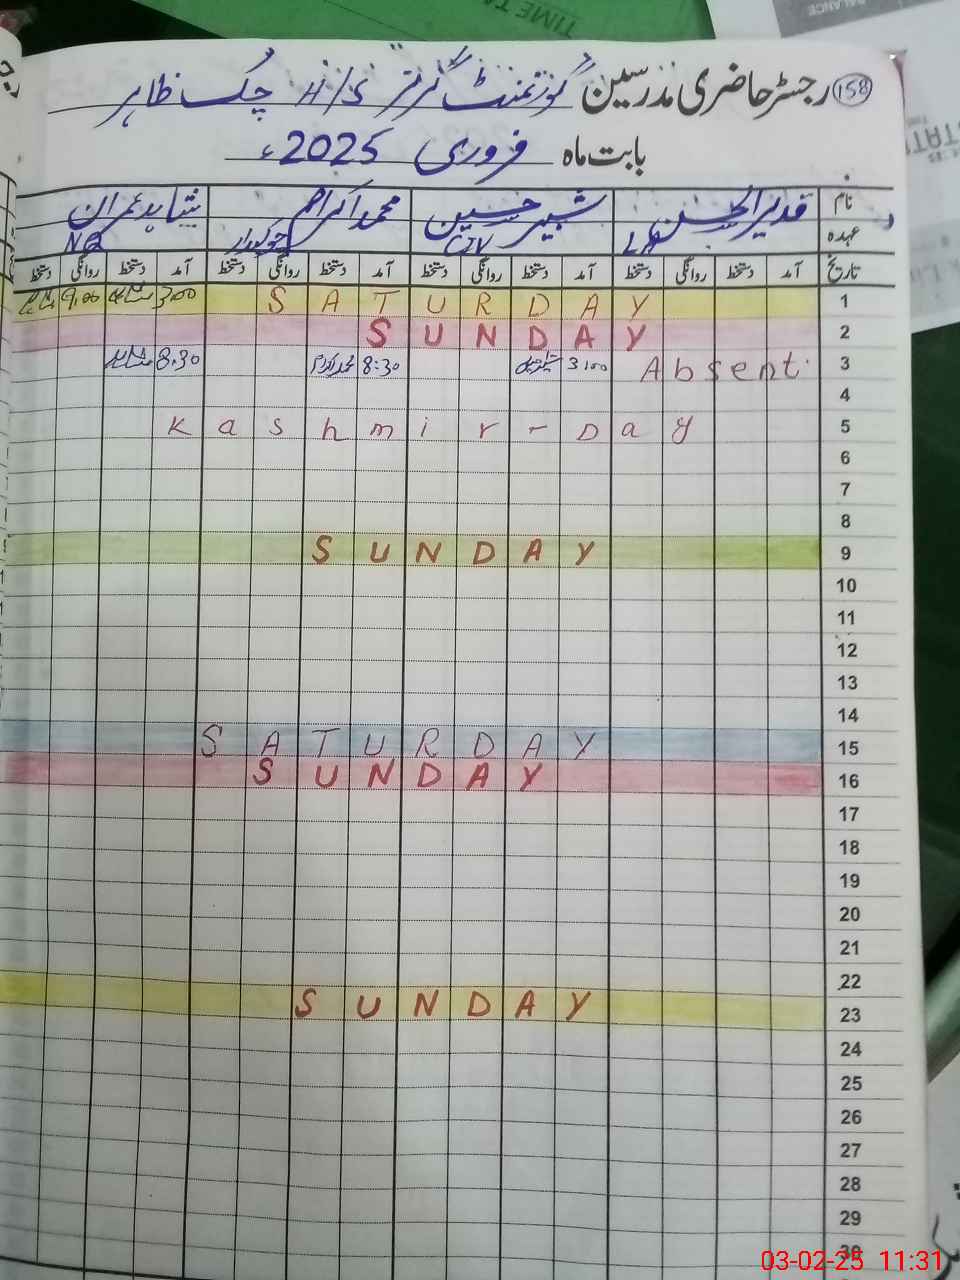 158 رجسٹر حاضری مدرسین گورنمنٹ گرلز H/S چک ظاہر
بابت ماہ فروری 2025ء
نام قدیر الحسن شبیر حسین محمد اکرام شاہد عمران
عہدہ چوکیدار NQ
تاریخ آمد دستخط روانگی دستخط آمد دستخط روانگی دستخط آمد دستخط روانگی دستخط آمد دستخط روانگی دستخط
S A T U R D A Y 1
S U N D A Y 2
8:30 8:30 Absent 3
4
Kashmir-Day 5
6
7
8
S U N D A Y 9
10
11
12
13
14
S A T U R D A Y 15
S U N D A Y 16
17
18
19
20
21
22
S U N D A Y 23
24
25
26
27
28
29
30
03-02-25 11:31
TIME TA
BALANCE